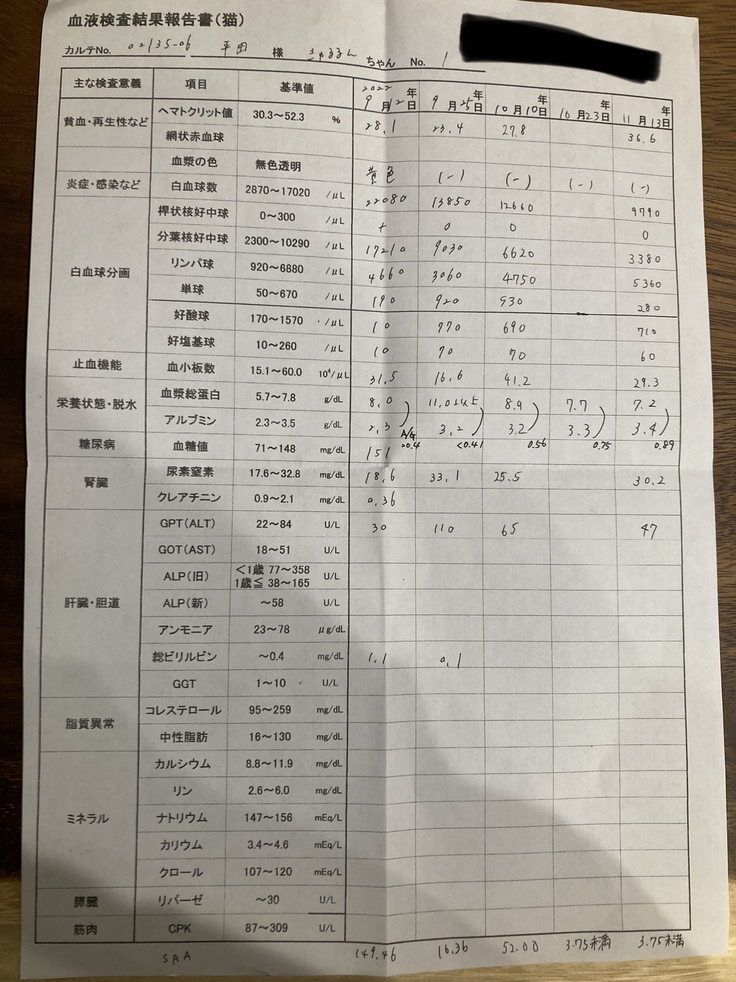 血液検査結果報告書(猫)
カルテNo. 02135-06 平田 様 きゅるるん ちゃん No. 1
主な検査意義 項目 基準値 2022年9月12日 年9月25日 年10月10日 年10月23日 年11月13日
貧血・再生性など ヘマトクリット値 30.3～52.3 % 28.1 23.4 27.8 36.6
網状赤血球
血漿の色 無色透明 黄色 (-) (-) (-) (-)
炎症・感染など 白血球数 2870～17020 /μL 22080 13850 12660 9790
白血球分画 桿状核好中球 0～300 /μL + 0 0 0
分葉核好中球 2300～10290 /μL 17210 9030 6620 3380
リンパ球 920～6880 /μL 4660 3060 4750 5360
単球 50～670 /μL 190 920 530 280
好酸球 170～1570 /μL 10 770 690 710
好塩基球 10～260 /μL 10 70 70 60
止血機能 血小板数 15.1～60.0 10⁴/μL 31.5 16.6 41.2 29.3
栄養状態・脱水 血漿総蛋白 5.7～7.8 g/dL 8.0 11.0以上 8.9 7.7 7.2
アルブミン 2.3～3.5 g/dL 2.3 3.2 3.2 3.3 3.4
A/G 0.4 <0.41 0.56 0.75 0.89
糖尿病 血糖値 71～148 mg/dL 151
腎臓 尿素窒素 17.6～32.8 mg/dL 18.6 33.1 25.5 30.2
クレアチニン 0.9～2.1 mg/dL 0.36
肝臓・胆道 GPT(ALT) 22～84 U/L 30 110 65 47
GOT(AST) 18～51 U/L
ALP(旧) <1歳 77～358 U/L
1歳≦ 38～165
ALP(新) ～58 U/L
アンモニア 23～78 μg/dL
総ビリルビン ～0.4 mg/dL 1.1 0.1
GGT 1～10 U/L
脂質異常 コレステロール 95～259 mg/dL
中性脂肪 16～130 mg/dL
ミネラル カルシウム 8.8～11.9 mg/dL
リン 2.6～6.0 mg/dL
ナトリウム 147～156 mEq/L
カリウム 3.4～4.6 mEq/L
クロール 107～120 mEq/L
膵臓 リパーゼ ～30 U/L
筋肉 CPK 87～309 U/L
SAA 149.46 16.36 52.00 3.75未満 3.75未満